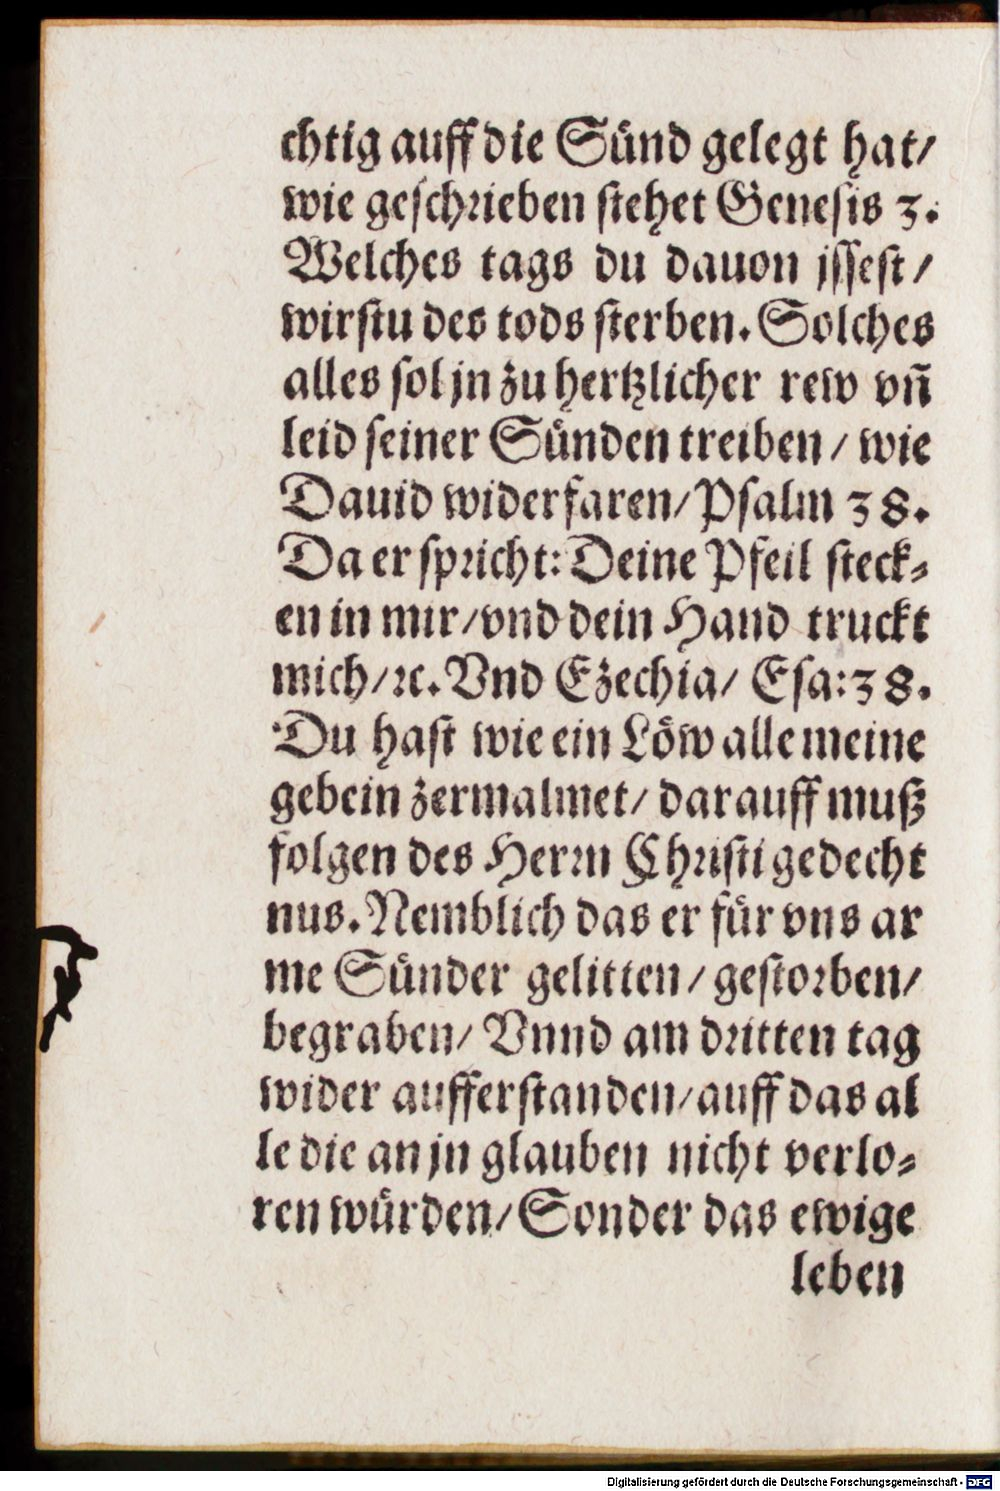 chtig auff die Sünd gelegt hat/
wie geschrieben stehet Genesis 3.
Welches tags du dauon jssest/
wirstu des tods sterben. Solches
alles sol jn zu hertzlicher rew vñ
leid seiner Sünden treiben/ wie
Dauid widerfaren/ Psalm 38.
Da er spricht: Deine Pfeil steck-
en in mir/ vnd dein Hand truckt
mich/ ꝛc. Vnd Ezechia/ Esa: 38.
Du hast wie ein Löw alle meine
gebein zermalmet/ darauff muß
folgen des Herrn Christi gedecht
nus. Nemblich das er für vns ar
me Sünder gelitten/ gestorben/
begraben/ Vnnd am dritten tag
wider aufferstanden/ auff das al
le die an jn glauben nicht verlo-
ren würden/ Sonder das ewige
leben
Digitalisierung gefördert durch die Deutsche Forschungsgemeinschaft - DFG